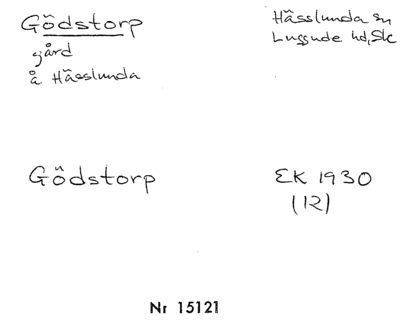 Gödstorp
gård
å Hässlunda
Hässlunda sn
Luggude hd, Sk
Gödstorp
EK 1930
(12)
Nr 15121